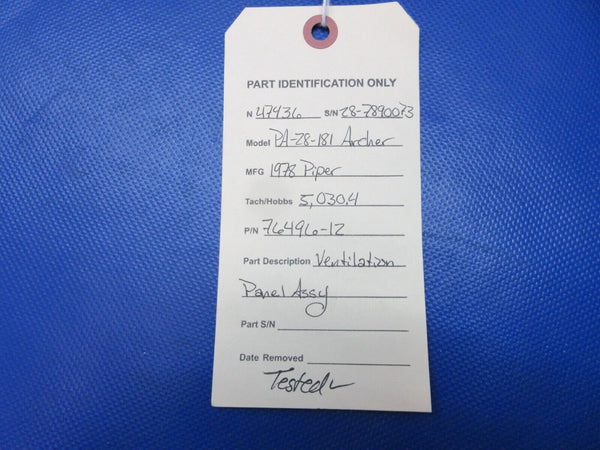 PART IDENTIFICATION ONLY
N 47936 S/N 28-7890073
Model PA-28-181 Archer
MFG 1978 Piper
Tach/Hobbs 5,030.4
P/N 76496-12
Part Description Ventilation
Panel Assy
Part S/N
Date Removed
Tested